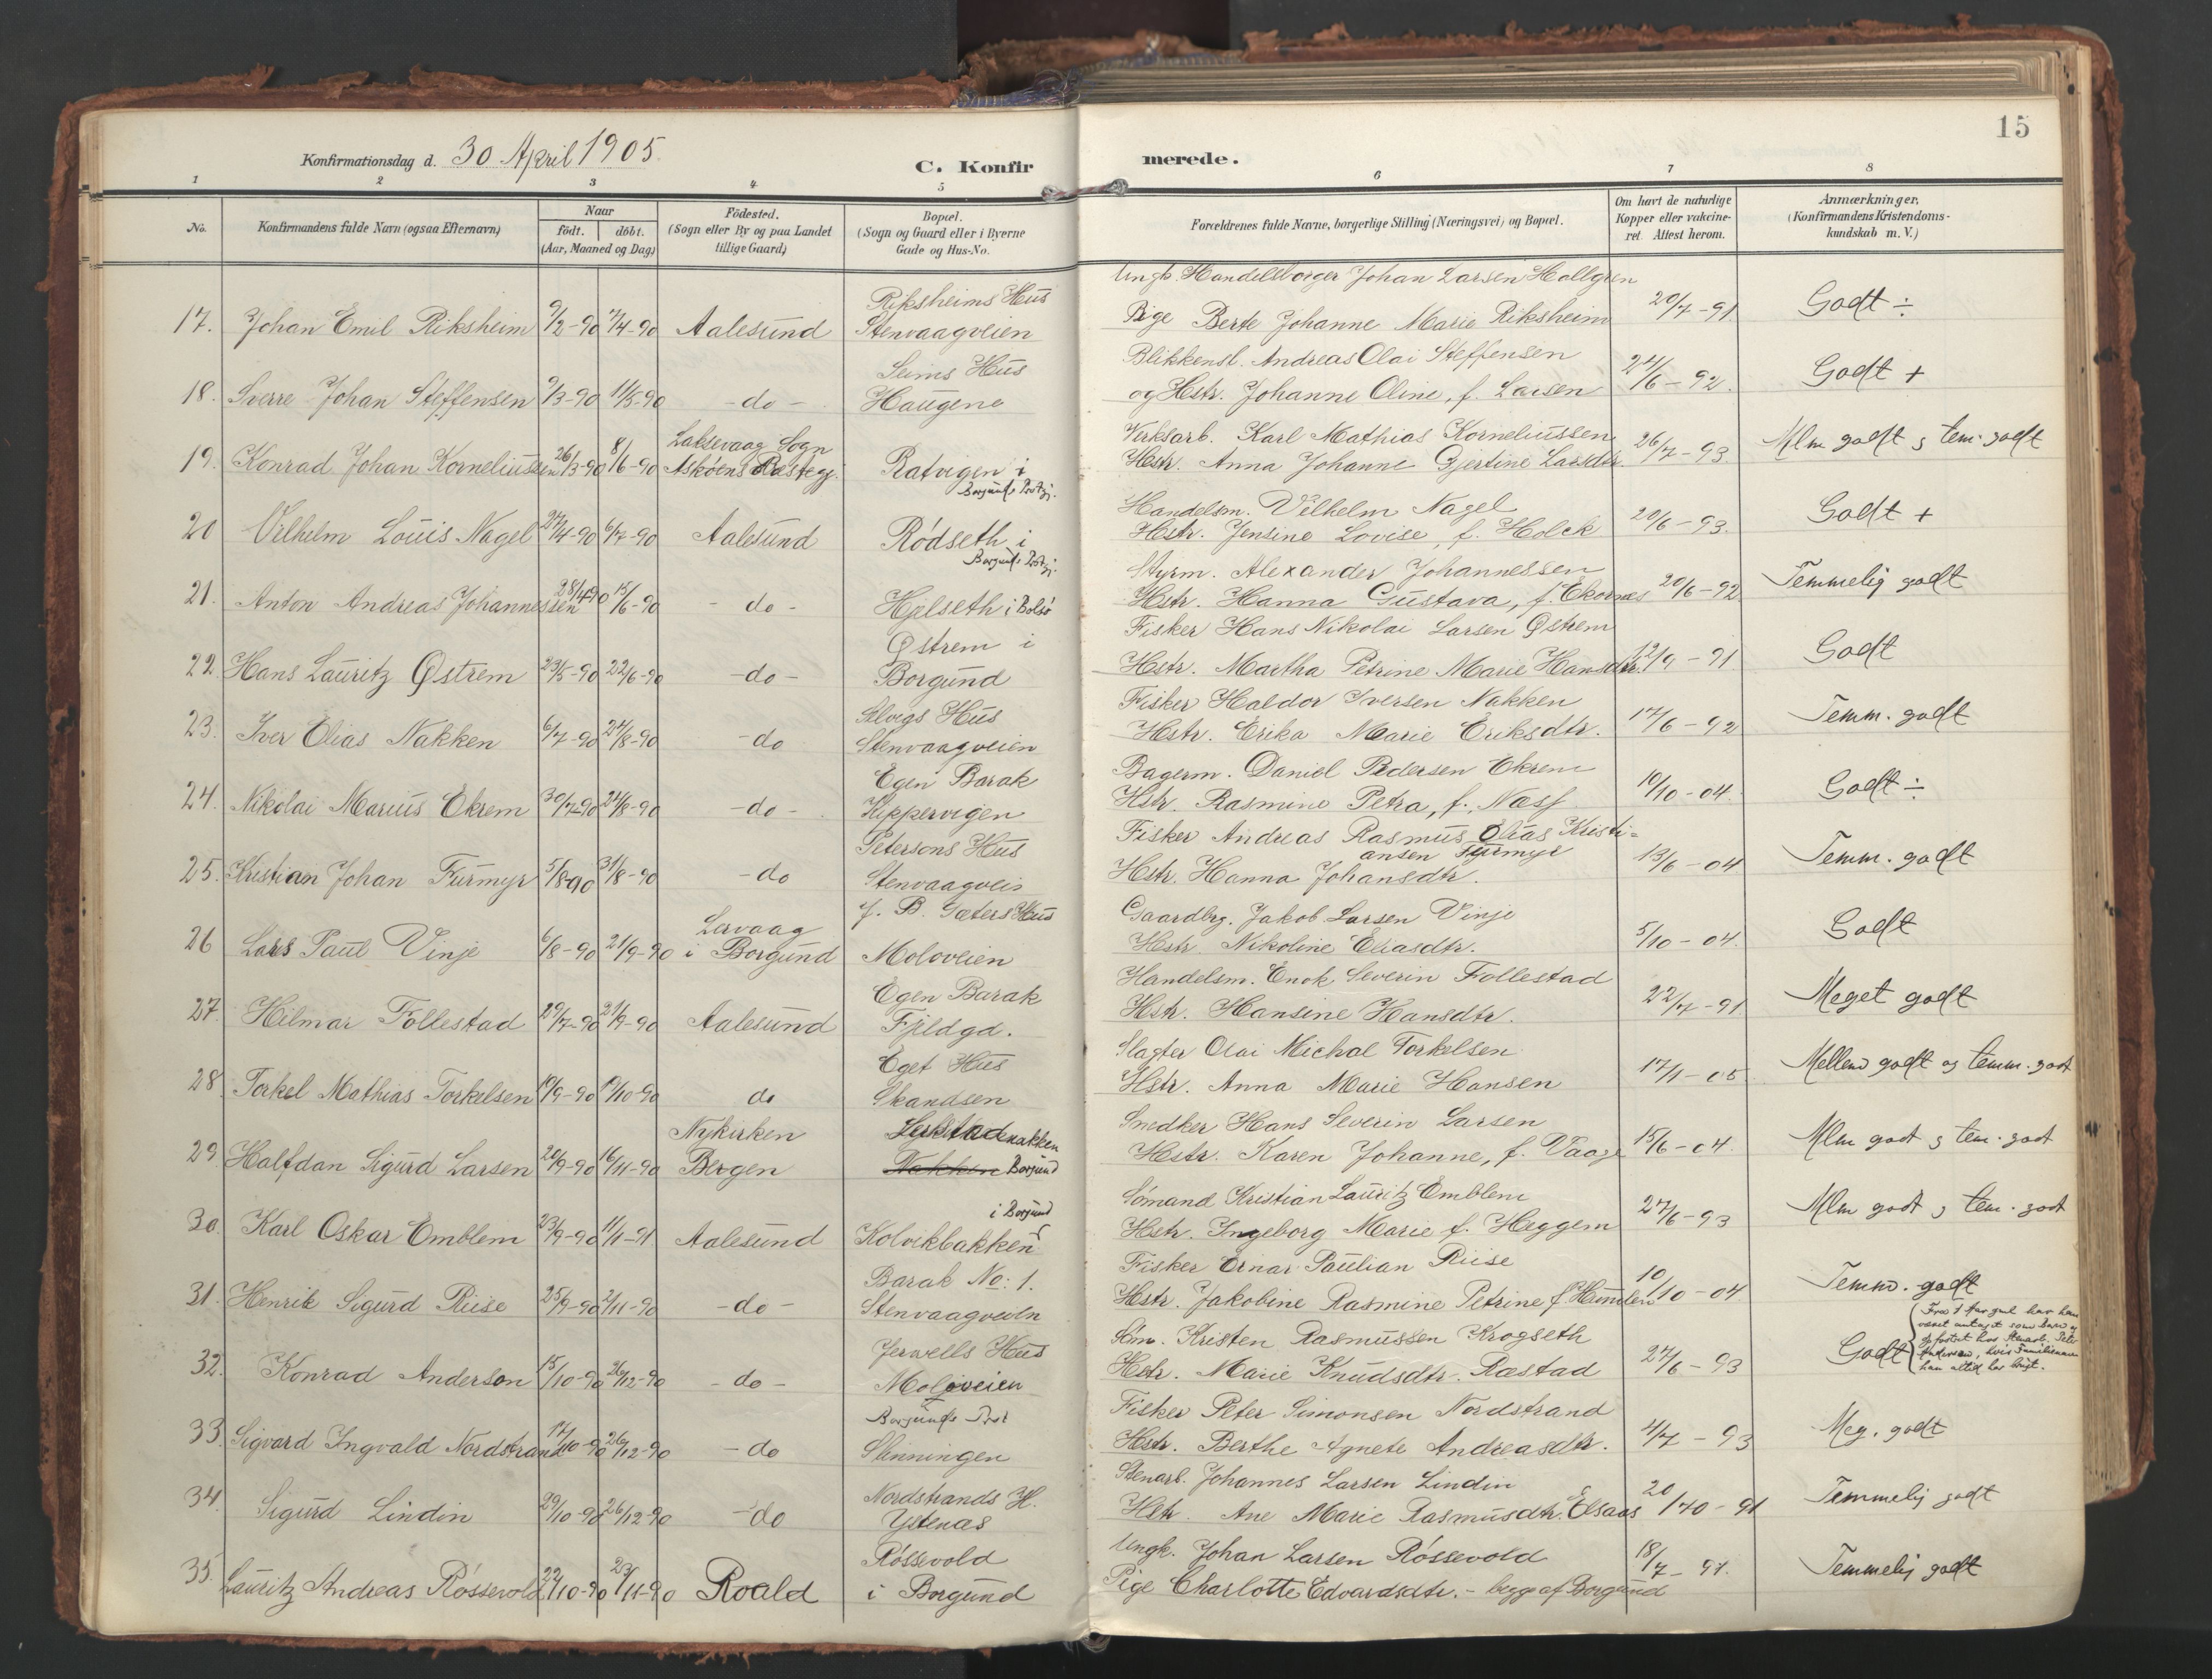 15
Konfirmationsdag d. 30 April 1905.
C. Konfir
merede.
1 2 3 4 5 6 7 8
No.
Konfirmandens fulde Navn (ogsaa Efternavn)
Naar
födt. döbt.
(Aar, Maaned og Dag)
Födested.
(Sogn eller By og paa Landet
tillige Gaard)
Bopæl.
(Sogn og Gaard eller i Byerne
Gade og Hus-No.
Forældrenes fulde Navne, borgerlige Stilling (Næringsvei) og Bopæl.
Om havt de naturlige
Kopper eller vakcine-
ret. Attest herom.
Anmærkninger.
(Konfirmandens Kristendoms-
kundskab m. V.)
Riksheims Hus
Ungk. Handelsborger Johan Larsen Hallgren
17. Johan Emil Riksheim 9/2-90 7/4-90 Aalesund Stenvaagveien
Pige Berte Johanne Marie Riksheim 20/7-91 Godt ÷
Seims Hus
Blikkensl. Andreas Olai Steffensen
18. Sverre Johan Steffensen 9/3-90 11/5-90 -do- Haugene
og Hstr. Johanne Oline, f. Larsen 24/6-92. Godt +
Laksevaag Sogn
Virksarb. Karl Mathias Korneliussen
19. Konrad Johan Korneliussen 26/3-90 8/6-90 Askøens Præstegj. Ratvigen i
Borgunds Prstgj.
Hstr. Anna Johanne Gjertine Larsdtr. 26/7-93. Mlm godt & tem. godt
Handelsm. Vilhelm Nagel
20 Vilhelm Louis Nagel 27/4-90 6/7-90 Aalesund Rödseth i
Borgunds Prstgj.
Hstr. Jensine Lovise, f. Holck 20/6-93. Godt +
Styrm. Alexander Johannessen
21. Anton Andreas Johannessen 28/4-90 15/6-90 -do- Hjelseth i Bolsø
Hstr. Hanna Gustava, f. Ekornes 20/6-92 Temmelig godt
Østrem i
Fisker Hans Nikolai Larsen Østrem
22. Hans Lauritz Østrem 23/5-90 22/6-90 -do- Borgund
Hstr. Martha Petrine Marie Hansdtr. 12/9-91 Godt
Alvigs Hus
Fisker Haldor Iversen Nakken
23. Iver Elias Nakken 6/7-90 24/8-90 -do Stenvaagveien
Hstr. Erika Marie Eriksdtr. 17/6-92 Temm. godt
Egen Barak
Bagerm. Daniel Pedersen Ekrem
24. Nikolai Marius Ekrem 30/7-90 24/8-90 -do- Kippervigen
Hstr. Rasmine Petra, f. Næss 10/10-04. Godt ÷
Petersons Hus
Fisker Andreas Rasmus Elias Kristi=
ansen Furmyr
25. Kristian Johan Furmyr 5/8-90 31/8-90 -do Stenvaagvei
Hstr. Hanna Johansdtr. 13/6-04 Temm. godt
J. B. Sæters Hus
Lervaag
Gaardbrg. Jakob Larsen Vinje
26 Lars Paul Vinje 6/8-90 21/9-90 i Borgund Moloveien
Hstr. Nikoline Eliasdtr. 5/10-04. Godt
Egen Barak
Handelsm. Enok Severin Follestad
27. Hilmar Follestad 29/7-90 21/9-90 Aalesund Fjeldgd.
Hstr. Hansine Hansdtr. 22/7-91 Meget godt
Eget Hus
Slagter Olai Michal Torkelsen
28 Torkel Mathias Torkelsen 19/9-90 19/10-90 do Skandsen
Hstr. Anna Marie Hansen 17/1-05 Mellem godt og temm. godt
Nykirken
Snedker Hans Severin Larsen
29. Halfdan Sigurd Larsen 20/9-90 16/11-90 Bergen Nakken Borgund
Hstr. Karen Johanne, f. Vaage 15/6-04. Mlm godt & tem. godt
i Borgund
Sömand Kristian Lauritz Emblem
30. Karl Oskar Emblem 23/9-90 11/1-91 Aalesund Kolvikbakken
Hstr. Ingeborg Marie f. Heggem 27/6-93 Mlm godt & tem. godt
Barak No: 1.
Fisker Einar Paulian Riise
31. Henrik Sigurd Riise 25/9-90 2/11-90 -do- Stenvaagveien
Hstr. Jakobine Rasmine Petrine f. Humlen 10/10-04. Temm. godt
Jerwells Hus
Söm. Kristen Rasmussen Krogseth
32. Konrad Anderson 15/10-90 26/12-90 -do- Moloveien
Hstr. Marie Knudsdtr. Ræstad 27/6-93 Godt
Fra 1 Aar gml har han
været antaget som Barn og
opfostret hos Stenarb. Peter
Anderson, hvis Familienavn
han altid har brugt.
Borgunds Prst
Fisker Peter Simonsen Nordstrand
33. Sigvard Ingvald Nordstrand 17/10-90 26/12-90 -do Slinningen
Hstr. Berthe Agnete Andreasdtr. 4/7-93 Meg. godt
Nordstrands H.
Stenarb. Johannes Larsen Lindin
34. Sigurd Lindin 29/10-90 26/12-90 -do Ystenæs
Hstr. Ane Marie Rasmusdtr. Elsaas 20/10-91 Temmelig godt
Røssevold
Ungk. Johan Larsen Røssevold
35. Lauritz Andreas Røssevold 22/10-90 23/11-90 Roald i Borgund
Pige Charlotte Edvardsdtr. - begge af Borgund 18/7-91. Temmelig godt